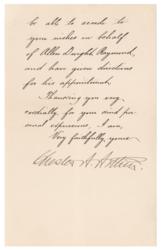 be able to accede to
your wishes in behalf
of Allen Dwight Raymond,
and have given directions
for his appointment.
Thanking you very
cordially for your kind per-
sonal expressions, I am,
Very faithfully, yours
Chester A. Arthur.